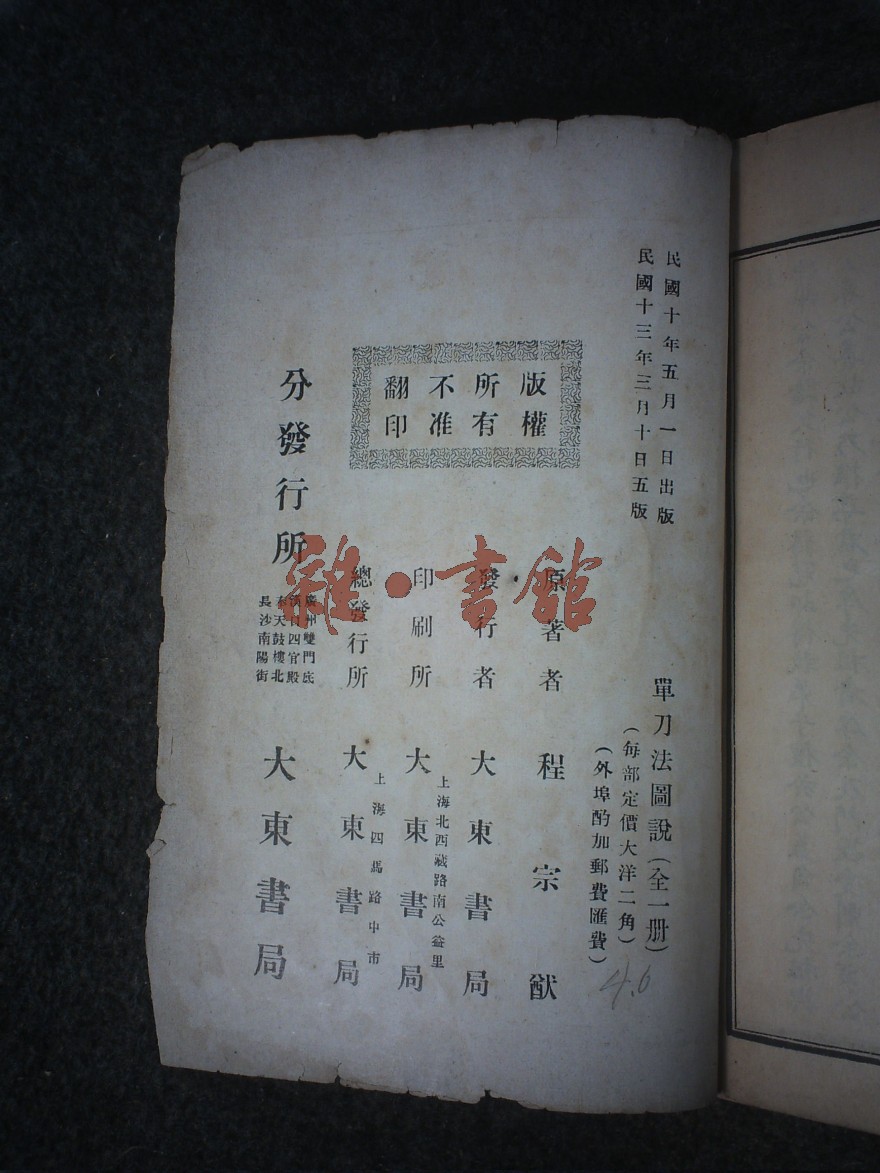 民國十年五月一日出版
民國十三年三月十日五版
單刀法圖說（全一册）
（每部定價大洋二角）
（外埠酌加郵費匯費）
4.0
版權
所有
不准
翻印
原著者 程宗猷
發行者 大東書局
上海北西藏路南公益里
印刷所 大東書局
上海四馬路中市
總發行所 大東書局
分發行所
廣州雙門底
漢口四官殿
奉天鼓樓北
長沙南陽街
大東書局
雜·書館